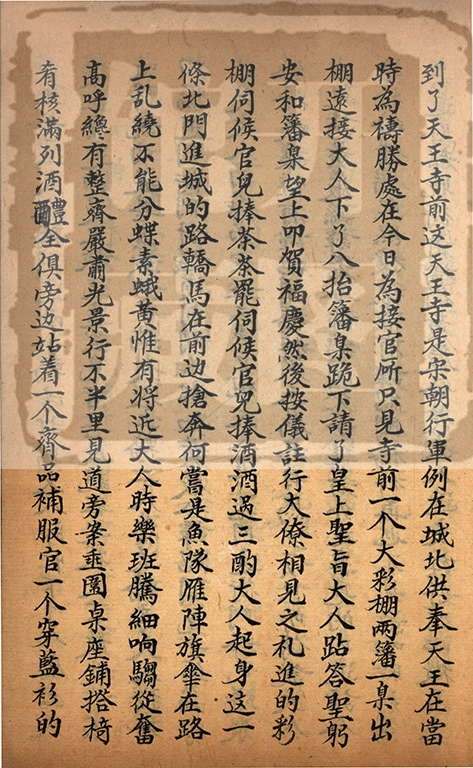 到了天王寺前这天王寺是宋朝行軍例在城北供奉天王在當
時為禱勝處在今日為接官所只見寺前一个大彩棚两藩一臬出
棚遠接大人下了八抬藩臬跪下請了皇上聖旨大人跕答聖躬
安和藩臬望上叩賀福慶然後按儀註行大僚相見之礼進的彩
棚伺候官兒捧茶茶罷伺候官兒捧酒酒過三酌大人起身這一
條北門進城的路轎馬在前边搶奔何嘗是魚隊雁陣旗傘在路
上乱繞不能分蝶素蛾黄惟有将近大人時樂班騰細响騶從奮
高呼總有整齊嚴肅光景行不半里見道旁案垂圍桌座鋪搭椅
肴核滿列酒醴全俱旁边站着一个齊品補服官一个穿藍衫的